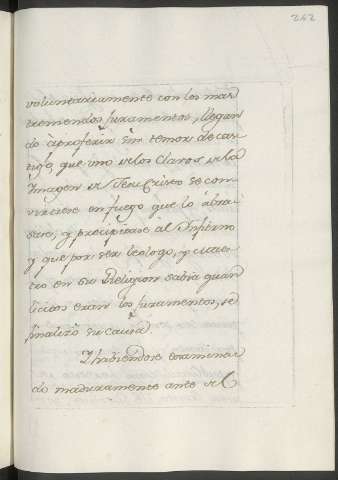 262
voluntariamente con los mas
tremendos juramentos, llegan
do à proferir sin temor de cas
tigo, que uno de los Claros de la
Imagen de Jesu Cristo se com
virtiese en fuego que lo abra
sase, y precipitase al Infierno
y que por ser teologo, y
tro en su Religion savia quan
licitos eran los juramentos, se
finalizó su causa
Y haviendose examina
do maduramente ante el